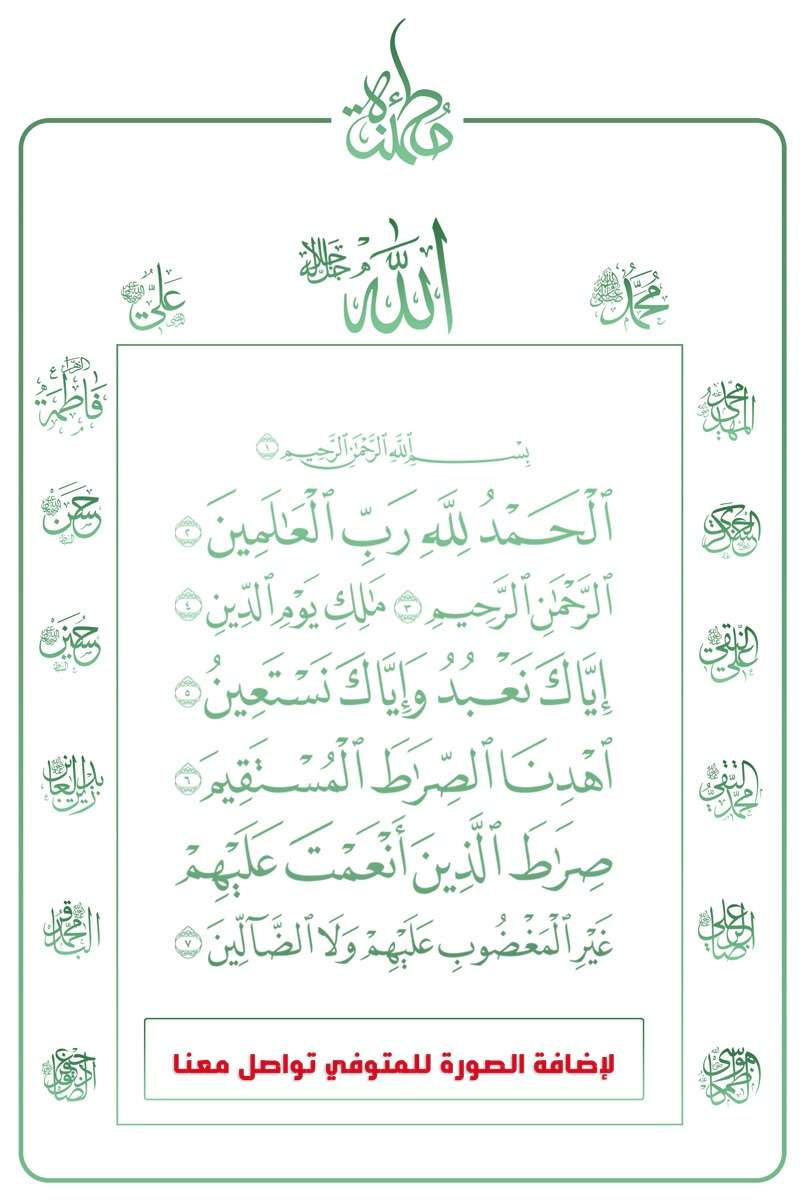 مطمئنة
الله جل جلاله
محمد
علي
فاطمة الزهراء
حسن
حسين
زين العابدين
محمد الباقر
جعفر الصادق
محمد المهدي
العسكري
علي النقي
محمد التقي
علي الرضا
موسى الكاظم
بِسْمِ ٱللَّهِ ٱلرَّحْمَٰنِ ٱلرَّحِيمِ ١
ٱلْحَمْدُ لِلَّهِ رَبِّ ٱلْعَٰلَمِينَ ٢
ٱلرَّحْمَٰنِ ٱلرَّحِيمِ ٣ مَٰلِكِ يَوْمِ ٱلدِّينِ ٤
إِيَّاكَ نَعْبُدُ وَإِيَّاكَ نَسْتَعِينُ ٥
ٱهْدِنَا ٱلصِّرَٰطَ ٱلْمُسْتَقِيمَ ٦
صِرَٰطَ ٱلَّذِينَ أَنْعَمْتَ عَلَيْهِمْ
غَيْرِ ٱلْمَغْضُوبِ عَلَيْهِمْ وَلَا ٱلضَّآلِّينَ ٧
لإضافة الصورة للمتوفي تواصل معنا